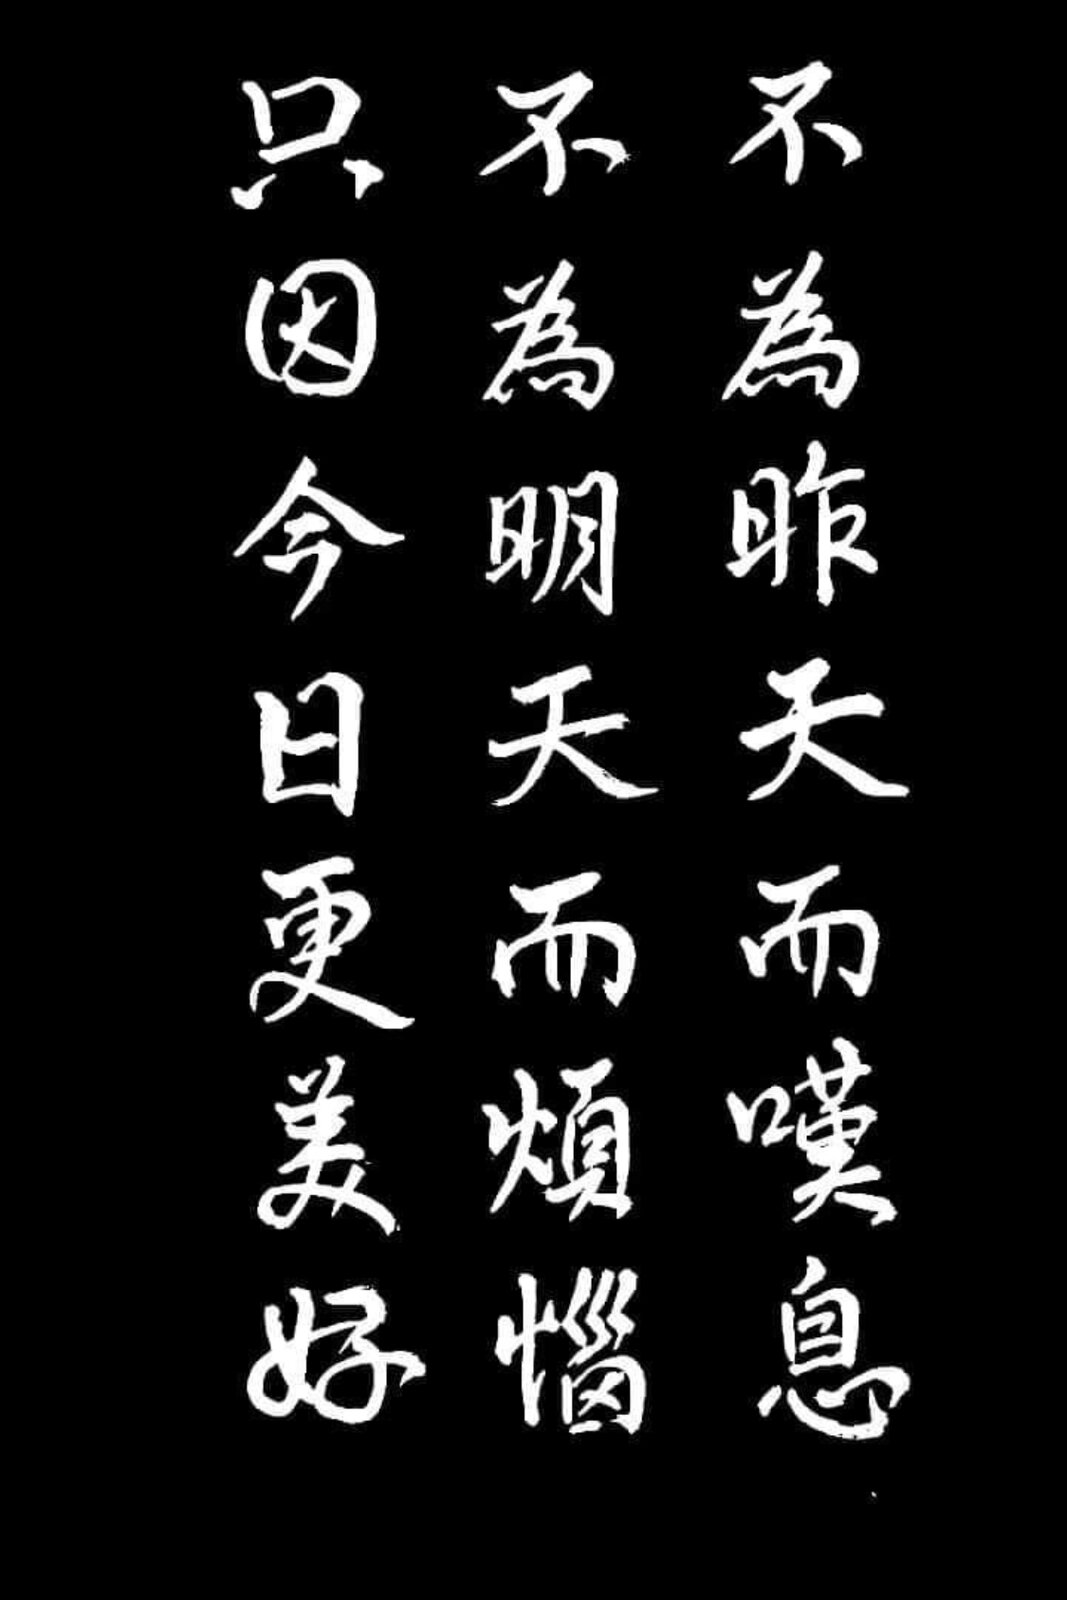 不為昨天而嘆息
不為明天而煩惱
只因今日更美好